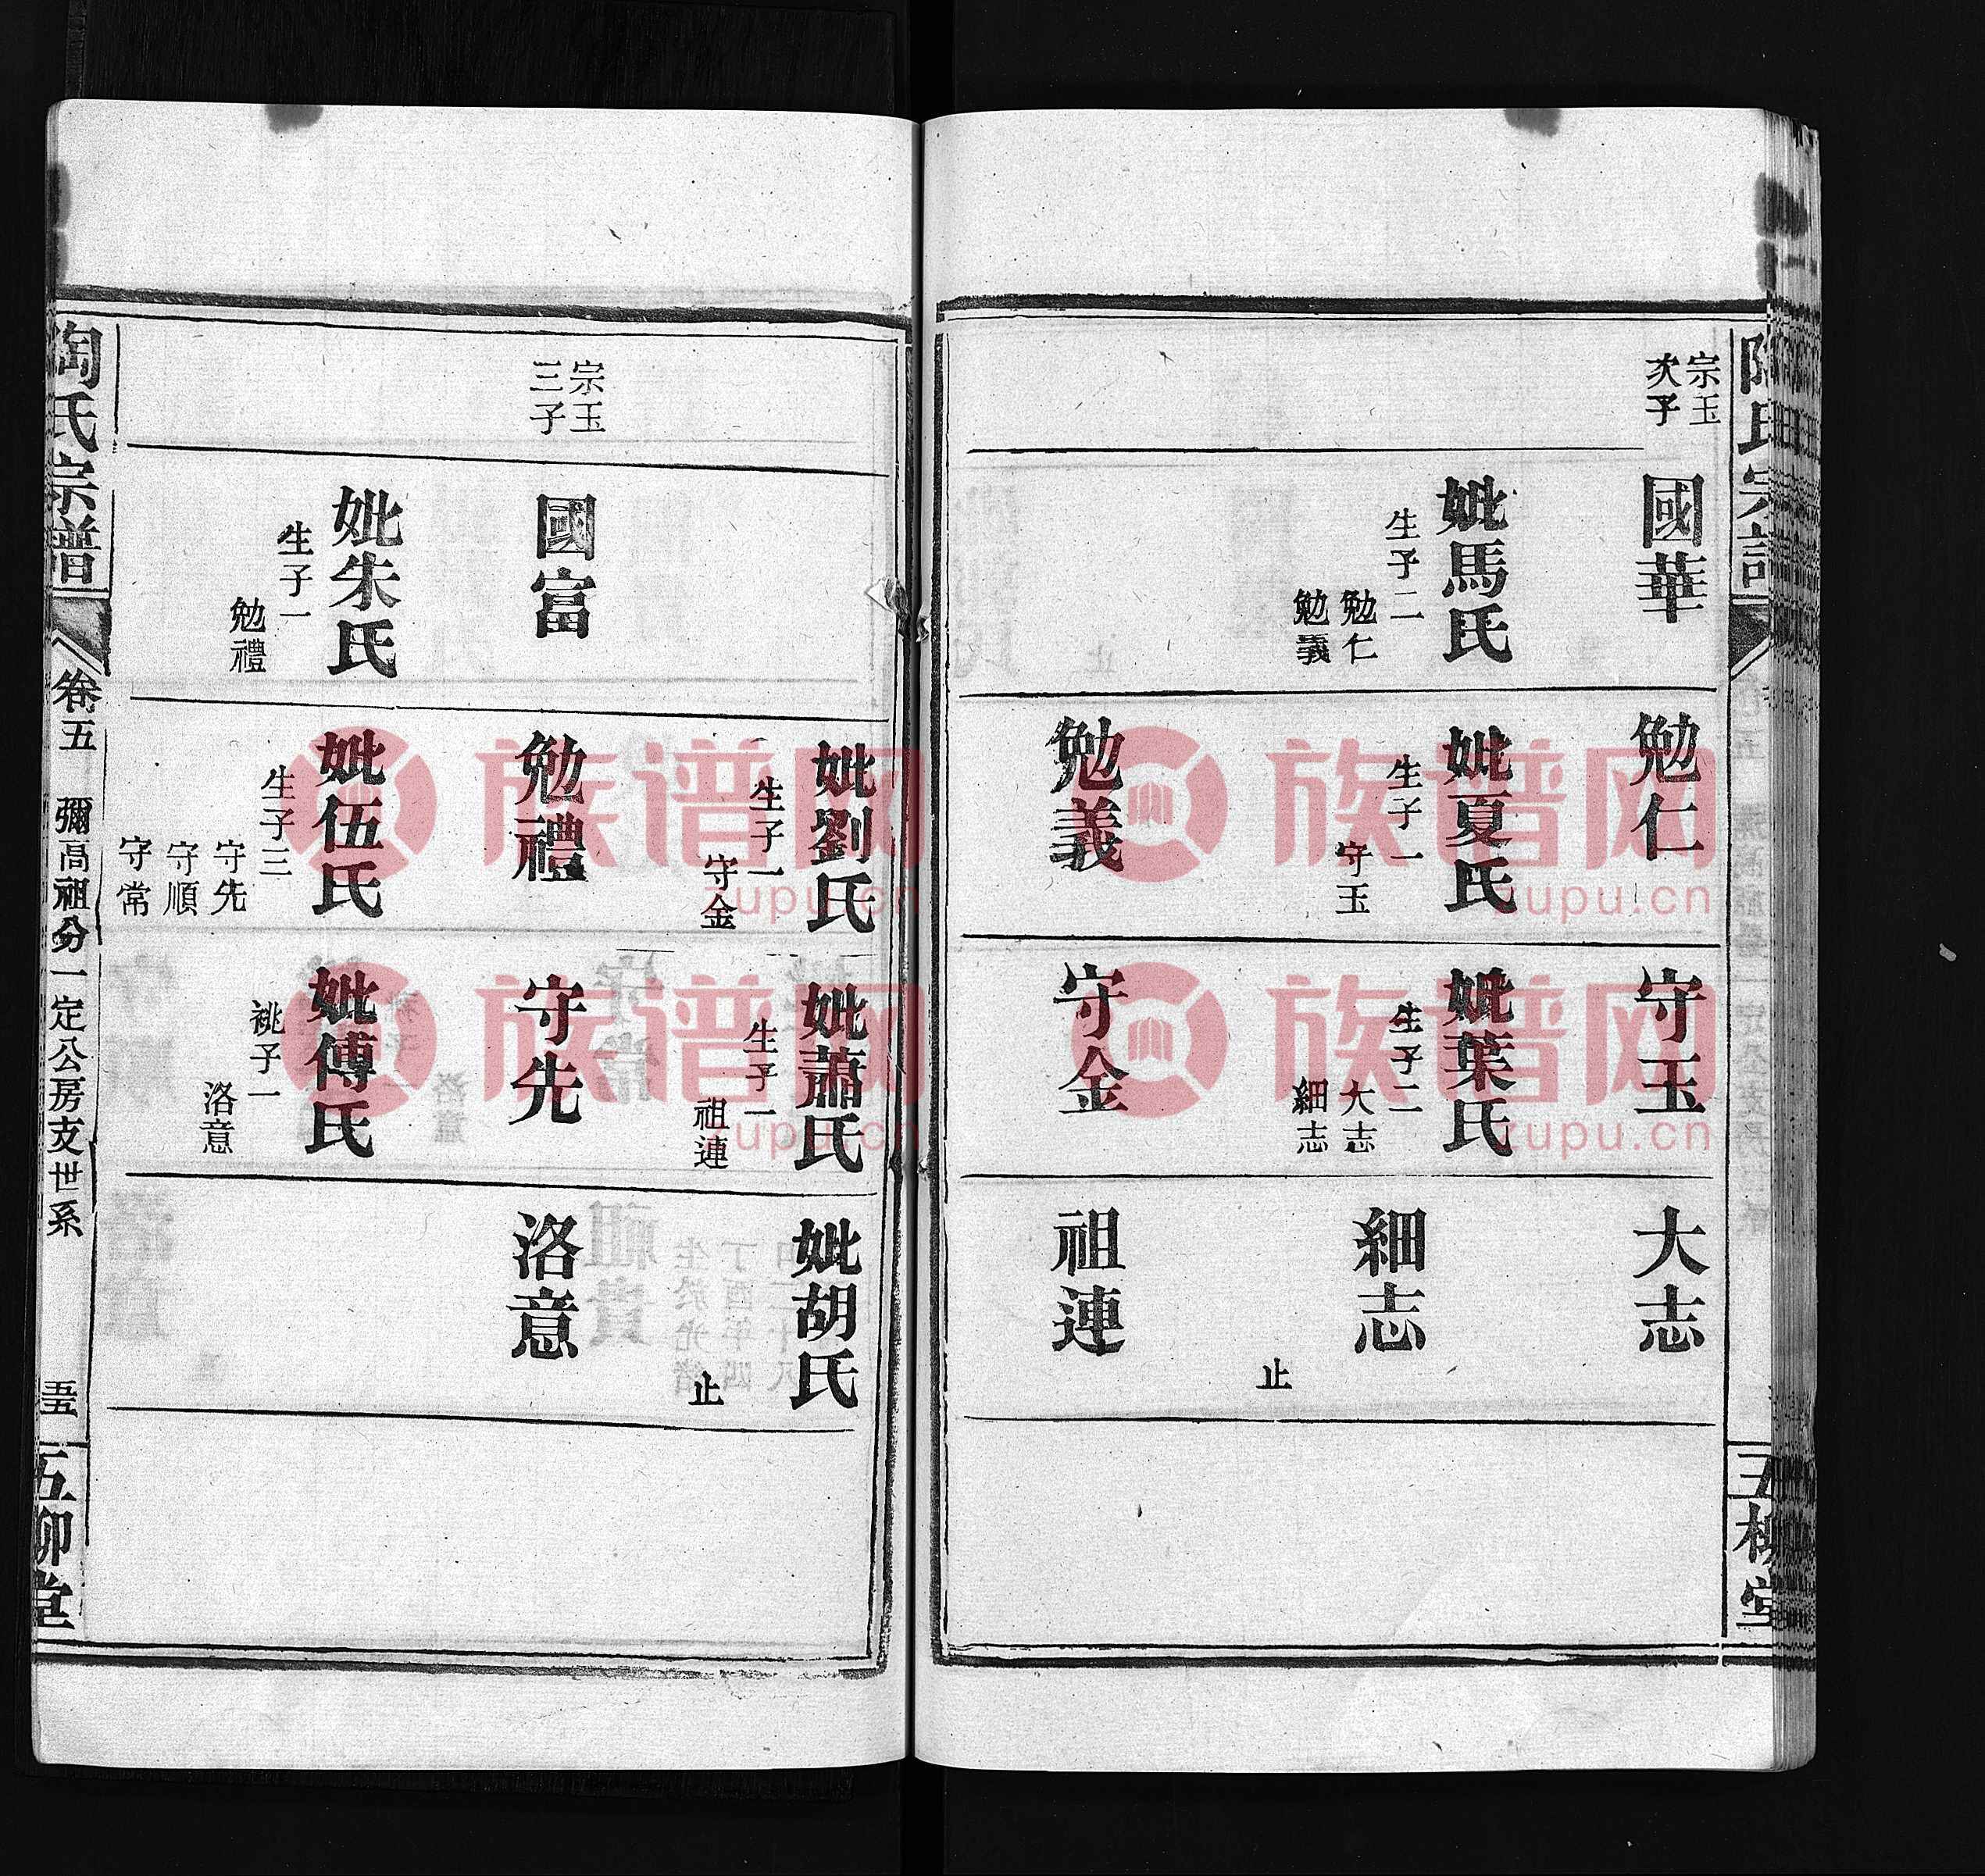 宗玉
次子
國華
妣馬氏
生子二
勉仁
勉義
勉仁
妣夏氏
生子一
守玉
勉義
守玉
妣葉氏
生子二
大志
細志
守金
大志
細志
止
祖連
五柳堂
妣劉氏
生子一
守金
妣蕭氏
生子一
祖連
妣胡氏
止
宗玉
三子
國富
妣朱氏
生子一
勉禮
勉禮
妣伍氏
生子三
守先
守順
守常
守先
妣傅氏
祧子一
洛意
洛意
陶氏宗譜
卷五
彌高祖分一定公房支世系
五五
五柳堂
族谱网
zupu.cn
族谱网
zupu.cn
族谱网
zupu.cn
族谱网
zupu.cn